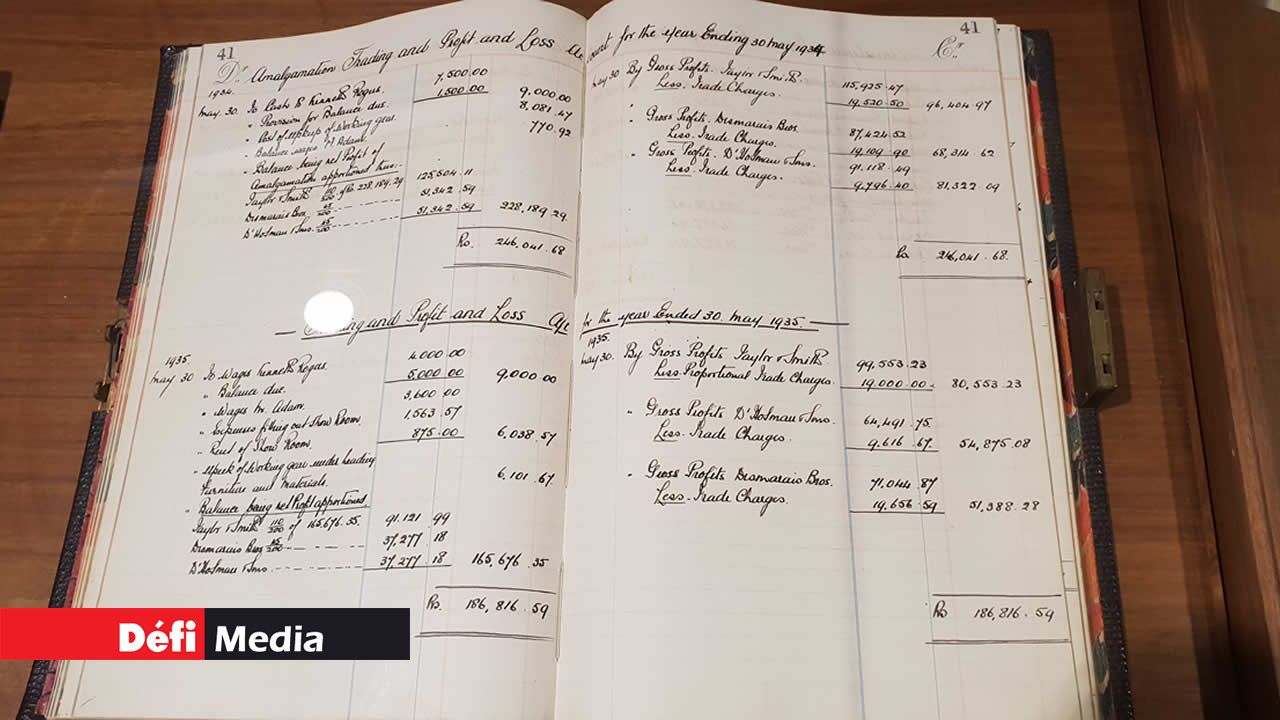 41
Dr. Amalgamation Trading and Profit and Loss Account for the year Ending 30 may 1934
41
Cr.
1934.
may. 30. To Cash to Kenneth Rogus. 7,500.00
" Provision for Balance due. 1,500.00 9,000.00
" Cost of upkeep of Working gear. 8,081.47
" Balance wages Adam. 770.92
" Balance being net Profit of
Amalgamation apportioned thus:
Taylor & Smith 110/200 of Rs 228,189.29 125,504.11
Dismarais Bros. 45/200 51,342.59
D'Hotman & Sons. 45/200 51,342.59 228,189.29
Rs. 246,041.68
may 30 By Gross Profits. Taylor & Smith. 115,925.47
Less. Trade Charges. 19,520.50 96,404.97
" Gross Profits. Dismarais Bros. 87,424.52
Less. Trade Charges. 19,109.90 68,314.62
" Gross Profits. D'Hotman & Sons. 91,118.49
Less. Trade Charges. 9,796.40 81,322.09
Rs. 246,041.68.
Trading and Profit and Loss A/c for the year Ended 30. may 1935.
1935.
may 30 To Wages Kenneth Rogus. 4,000.00
" Balance due. 5,000.00 9,000.00
" Wages M. Adam. 3,600.00
" Expenses fitting out Show Room 1,563.57
" Rent of Show Room. 875.00 6,038.57
" Upkeek of Working gear under heading
Furniture and materials. 6,101.67
" Balance being net Profit apportioned
Taylor & Smith 110/200 of 165,676.35. 91,121.99
Dismarais Bros 45/200 37,277.18
D'Hotman & Sons 37,277.18 165,676.35
Rs. 186,816.59
1935.
may 30. By Gross Profits Taylor & Smith. 99,553.23
Less. Proportional Trade Charges. 19,000.00 80,553.23
" Gross Profits D'Hotman & Sons. 64,491.75
Less. Trade Charges. 9,616.67 54,875.08
" Gross Profits Dismarais Bros. 71,044.87
Less. Trade Charges. 19,656.59 51,388.28
Rs 186,816.59
Défi Media